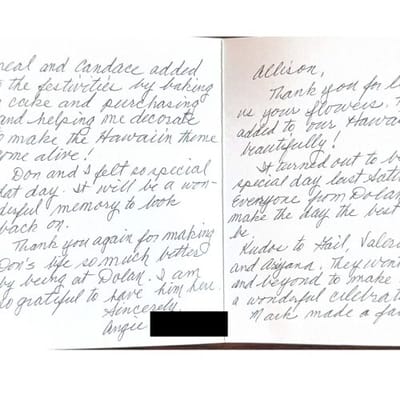 and Candace added
the festivities by baking
cake and purchasing
and helping me decorate
to make the Hawaii'n theme
come alive!
Don and I felt so special
that day. It will be a won-
derful memory to look
back on.
Thank you again for making
Don's life so much better
by being at Dolan. I am
so grateful to have him here.
Sincerely,
Angie
Allison,
Thank you for
us your flowers.
added to our Hawaii
beautifully!
It turned out to be
special day last
Everyone from Dolan
make the day the best
be.
Kudos to Gail,
and Aiyana. They
and beyond to make
a wonderful
Mark made a